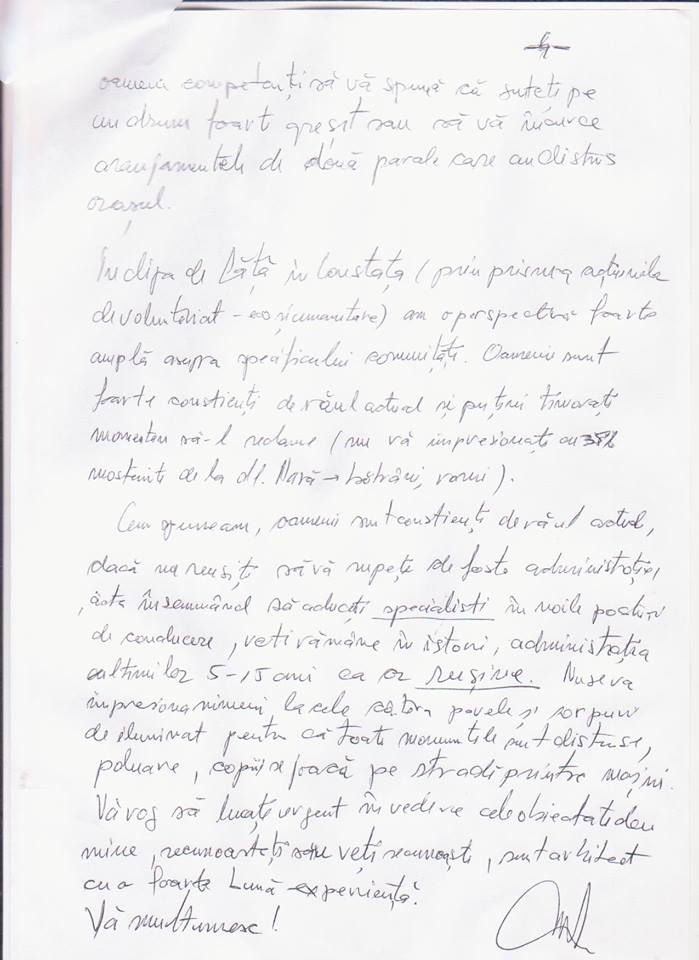 4
oameni competenți să vă spună că sunteți pe
un drum foart greșit sau să vă încurce
aranjamentele de două parale care au distrus
orașul.
În clipa de față în Constața (prin prisma acțiunilor
de voluntariat - eco și umanitare) am o perspectivă foarte
amplă asupra specificului comunității. Oamenii sunt
foarte constienți de răul actual și puțini timorați
momentan să-l reclame (nu vă impresionați cu 38%
mostenite de la dl. Mară → bătrâni, romi).
Cum spuneam, oamenii sunt constienți de răul actual,
dacă nu reusiți să vă rupeți de fosta administrație,
asta însemnând să aduceți specialisti în noile poziții
de conducere, veti rămâne în istorie, administrația
ultimilor 5-15 ani ca o rușine. Nu se va
impresiona nimeni la cele câteva pavele și corpuri
de iluminat pentru că toate monumentele sunt distruse,
poluare, copiii se joacă pe stradă printre mașini.
Vă rog să luați urgent în vedere cele obiectate de
mine, recunoasteți sau nu veți recunoaște, sunt arhitect
cu o foarte bună experiență.
Vă multumesc!